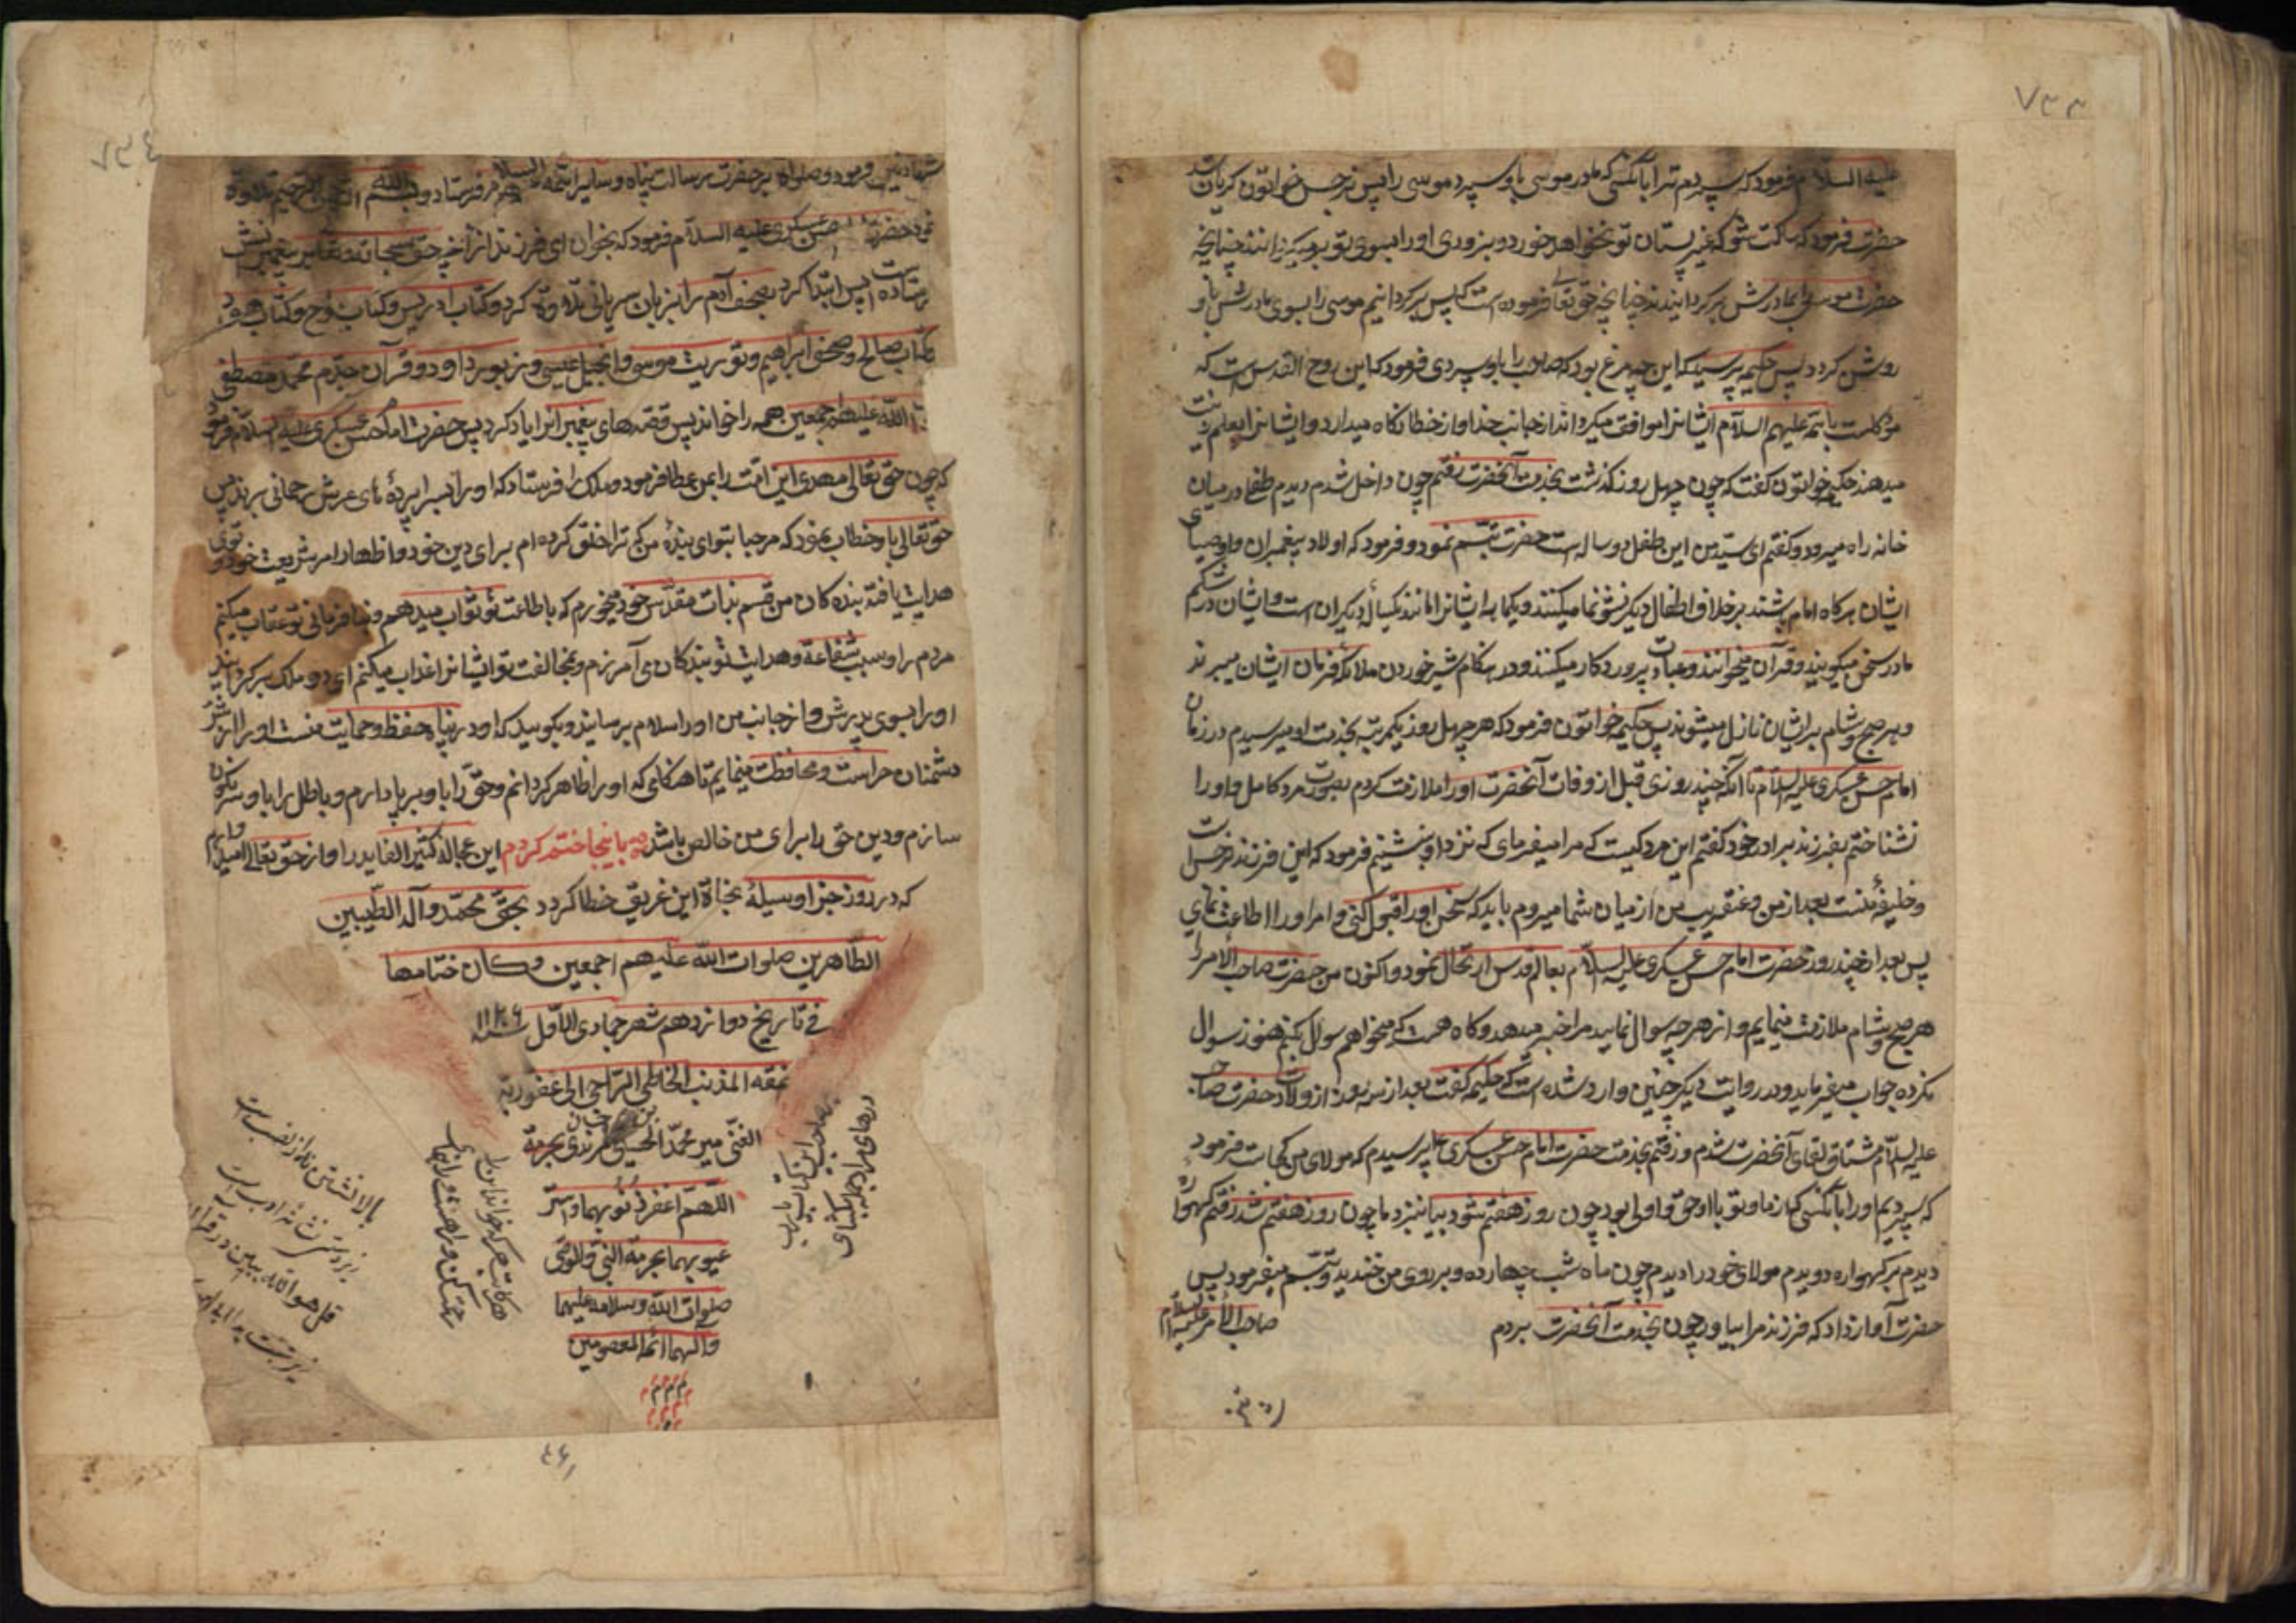 ۷۳۳
علیه السلام فرمود که سپردم ترا بآنکسی که مادر موسی باو سپرد موسی را پس نرجس خواتون کریان شد
حضرت فرمود که ساکت شو که غیر پستان تو نخواهد خورد و بزودی او را بسوی تو برمیکردانند چنانچه
حضرت موسی را بمادرش برکردانیدند چنانچه حق تعالی فرموده است که پس برکردانیم موسی را بسوی مادرش تا او
روشن کردد پس حکیمه پرسید که این چه مرغ بود که صاحب را باو سپردی فرمود که این روح القدس است که
موکلست بائمه علیهم السلام ایشانرا موافق میکرداند از جانب خدا و از خطا نکاه میدارد و ایشانرا بعلم زینت
میدهد حکیمه خواتون کفت که چون چهل روز کذشت بخدمت آنحضرت رفتم چون داخل شدم دیدم طفلی در میان
خانه راه میرود و کفتم ای سید من این طفل دو ساله است حضرت تبسم نمود و فرمود که اولاد پیغمبران و اوصیای
ایشان هرکاه امام باشند برخلاف اطفال دیکر نشو نما میکنند و یکماهه ایشانرا مانند یکساله دیکران است و ایشان در شکم
مادر سخن میکویند و قرآن میخوانند و عبادت پروردکار میکنند و در هنکام شیر خوردن ملائکه فرمان ایشان میبرند
و هر صبح و شام بر ایشان نازل میشوند پس حکیمه خواتون فرمود که هر چهل روز یکمرتبه بخدمت او میرسیدم در زمان
امام حسن عسکری علیه السلام تا آنکه چند روزی قبل از وفات آنحضرت او را ملازمت کردم بصورت مرد کامل و او را
نشناختم بفرزند برادر خود کفتم این مرد کیست که مرا میفرمای که نزد او بنشینم فرمود که این فرزند نرجس است
و خلیفه منست بعد از من و عنقریب من از میان شما میروم باید که سخن او را قبول کنی و امر او را اطاعت نمای
پس بعد از چند روز حضرت امام حسن عسکری علیه السلام بعالم قدس ارتحال نمود و اکنون من حضرت صاحب الامر را
هر صبح و شام ملازمت مینمایم و از هر چه سوال نمایند مرا خبر میدهد و کاه هست که میخواهم سوال بکنم هنوز سوال
نکرده جواب میفرماید و در روایت دیکر چنین وارد شده است که حکیمه کفت بعد از سه روز از ولادت حضرت صاحب
علیه السلام مشتاق لقای آنحضرت شدم و رفتم بخدمت حضرت امام حسن عسکری پرسیدم که مولای من کجاست فرمود
که سپردیم او را بآنکسی که از ما و تو باو احق و اولی بود چون روز هفتم شود بیا نزد ما چون روز هفتم شد رفتم کهواره
دیدم بر کهواره دویدم مولای خود را دیدم چون ماه شب چهارده و بر روی من خندید و تبسم میفرمود پس
حضرت آواز داد که فرزند مرا بیاور چون بخدمت آنحضرت بردم صاحب الامر علیه السلام
۷۳٤
شهادتین فرمود و صلواة بر حضرت رسالت پناه و سایر ائمه علیهم السلام فرستاد و بسم الله الرحمن الرحیم تلاوة
نمود حضرت حسن عسکری علیه السلام فرمود که بخوان ای فرزند از آنچه حق سبحانه و تعالی بر پیغمبرانش
فرستاده است پس ابتدا کرد بصحف آدم را بزبان سریانی تلاوة کرد و کتاب ادریس و کتاب نوح و کتاب هود
و کتاب صالح و صحف ابراهیم و توریت موسی و انجیل عیسی و زبور داود و قرآن جدم محمد مصطفی
الله علیهم اجمعین همه را خواند پس قصه های پیغمبرانرا یاد کرد پس حضرت امام حسن عسکری علیه السلام فرمود
که چون حق تعالی مهدی این امت را بمن عطا فرمود دو ملک را فرستاد که او را بسراپرده های عرش رحمانی بردند پس
حق تعالی باو خطاب نمود که مرحبا بتو ای بندهٔ من که ترا خلق کرده ام برای دین خود و اظهار امر شریعت خود و توئی
هدایت یافته بنده کان من قسم بذات مقدس خود میخورم که باطاعت تو ثواب میدهم و بنافرمانی تو عقاب میکنم
مردم را و بسبب شفاعة و هدایت تو بندکان می آمرزم و بمخالفت تو ایشانرا عذاب میکنم ای دو ملک برکردانید
او را بسوی پدرش و از جانب من او را سلام برسانید و بکویید که او در پناه حفظ و حمایت منست او را از شر
دشمنان حراست و محافظت مینمایم تا هنکامی که او را ظاهر کردانم و حق را باو برپا دارم و باطل را باو سرنکون
سازم و دین حق را برای من خالص باشد باینجا ختم کردم این عجاله کثیر الفایده را و از حق تعالی امیدوارم
که در روز جزا وسیلهٔ نجاة این غریق خطا کردد بحق محمد و آله الطیبین
الطاهرین صلوات الله علیهم اجمعین و کان ختامها
فی تاریخ دوازدهم شهر جمادی الاول سنه
نمقه المذنب الخاطی الراجی الی عفو ربه
الغنی میر محمد الحسینی
اللهم اغفر ذنوبهما و استر
عیوبهما بحرمة النبی والوصی
صلوات الله و سلامه علیهما
و آلهما ائمة المعصومین